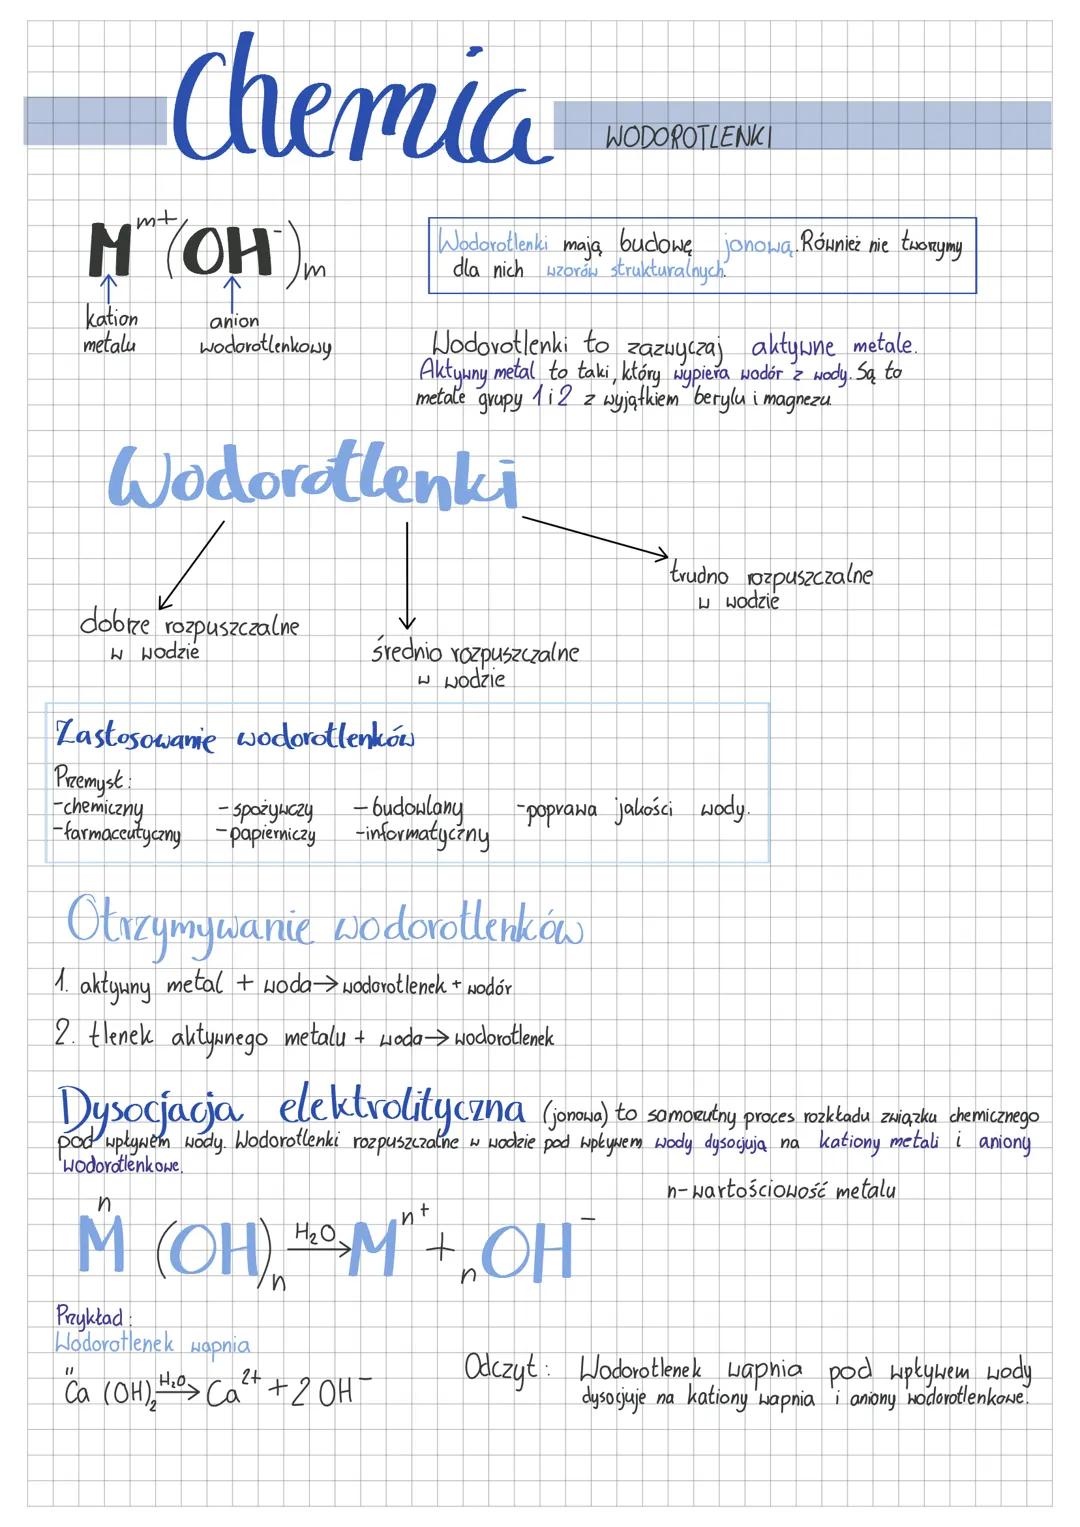 Chemia
WODOROTLENKI
M^m+(OH^-)_m
kation
metalu
anion
wodorotlenkowy
Wodorotlenki mają budowę jonową. Również nie tworzymy
dla nich wzorów strukturalnych.
Wodorotlenki to zazwyczaj aktywne metale.
Aktywny metal to taki, który wypiera wodór z wody. Są to
metale grupy 1 i 2 z wyjątkiem berylu i magnezu.
Wodorotlenki
dobrze rozpuszczalne
w wodzie
średnio rozpuszczalne
w wodzie
trudno rozpuszczalne
w wodzie
Zastosowanie wodorotlenków
Przemysł:
-chemiczny -spożywczy -budowlany -poprawa jakości wody.
-farmaceutyczny -papierniczy -informatyczny
Otrzymywanie wodorotlenków
1. aktywny metal + woda → wodorotlenek + wodór
2. tlenek aktywnego metalu + woda → wodorotlenek
Dysocjacja elektrolityczna (jonowa) to samorzutny proces rozkładu związku chemicznego
pod wpływem wody. Wodorotlenki rozpuszczalne w wodzie pod wpływem wody dysocjują na kationy metali i aniony
wodorotlenkowe.
n-wartościowość metalu
M^n (OH)_n —H₂O→ M^n+ + nOH^-
Przykład:
Wodorotlenek wapnia
Ca^II (OH)₂ —H₂O→ Ca²⁺ + 2 OH⁻
Odczyt: Wodorotlenek wapnia pod wpływem wody
dysocjuje na kationy wapnia i aniony wodorotlenkowe.